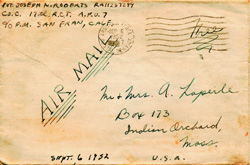 PVT. JOSEPH W. ROBERTS RA11257077
CO. C. 17th R.C.T. A.P.O. 7
% P.M. SAN FRAN, CALIF.
Free
AIR MAIL
Mr & Mrs. A. Laperle
Box 173
Indian Orchard,
Mass.
SEPT. 6 1952
U.S.A.